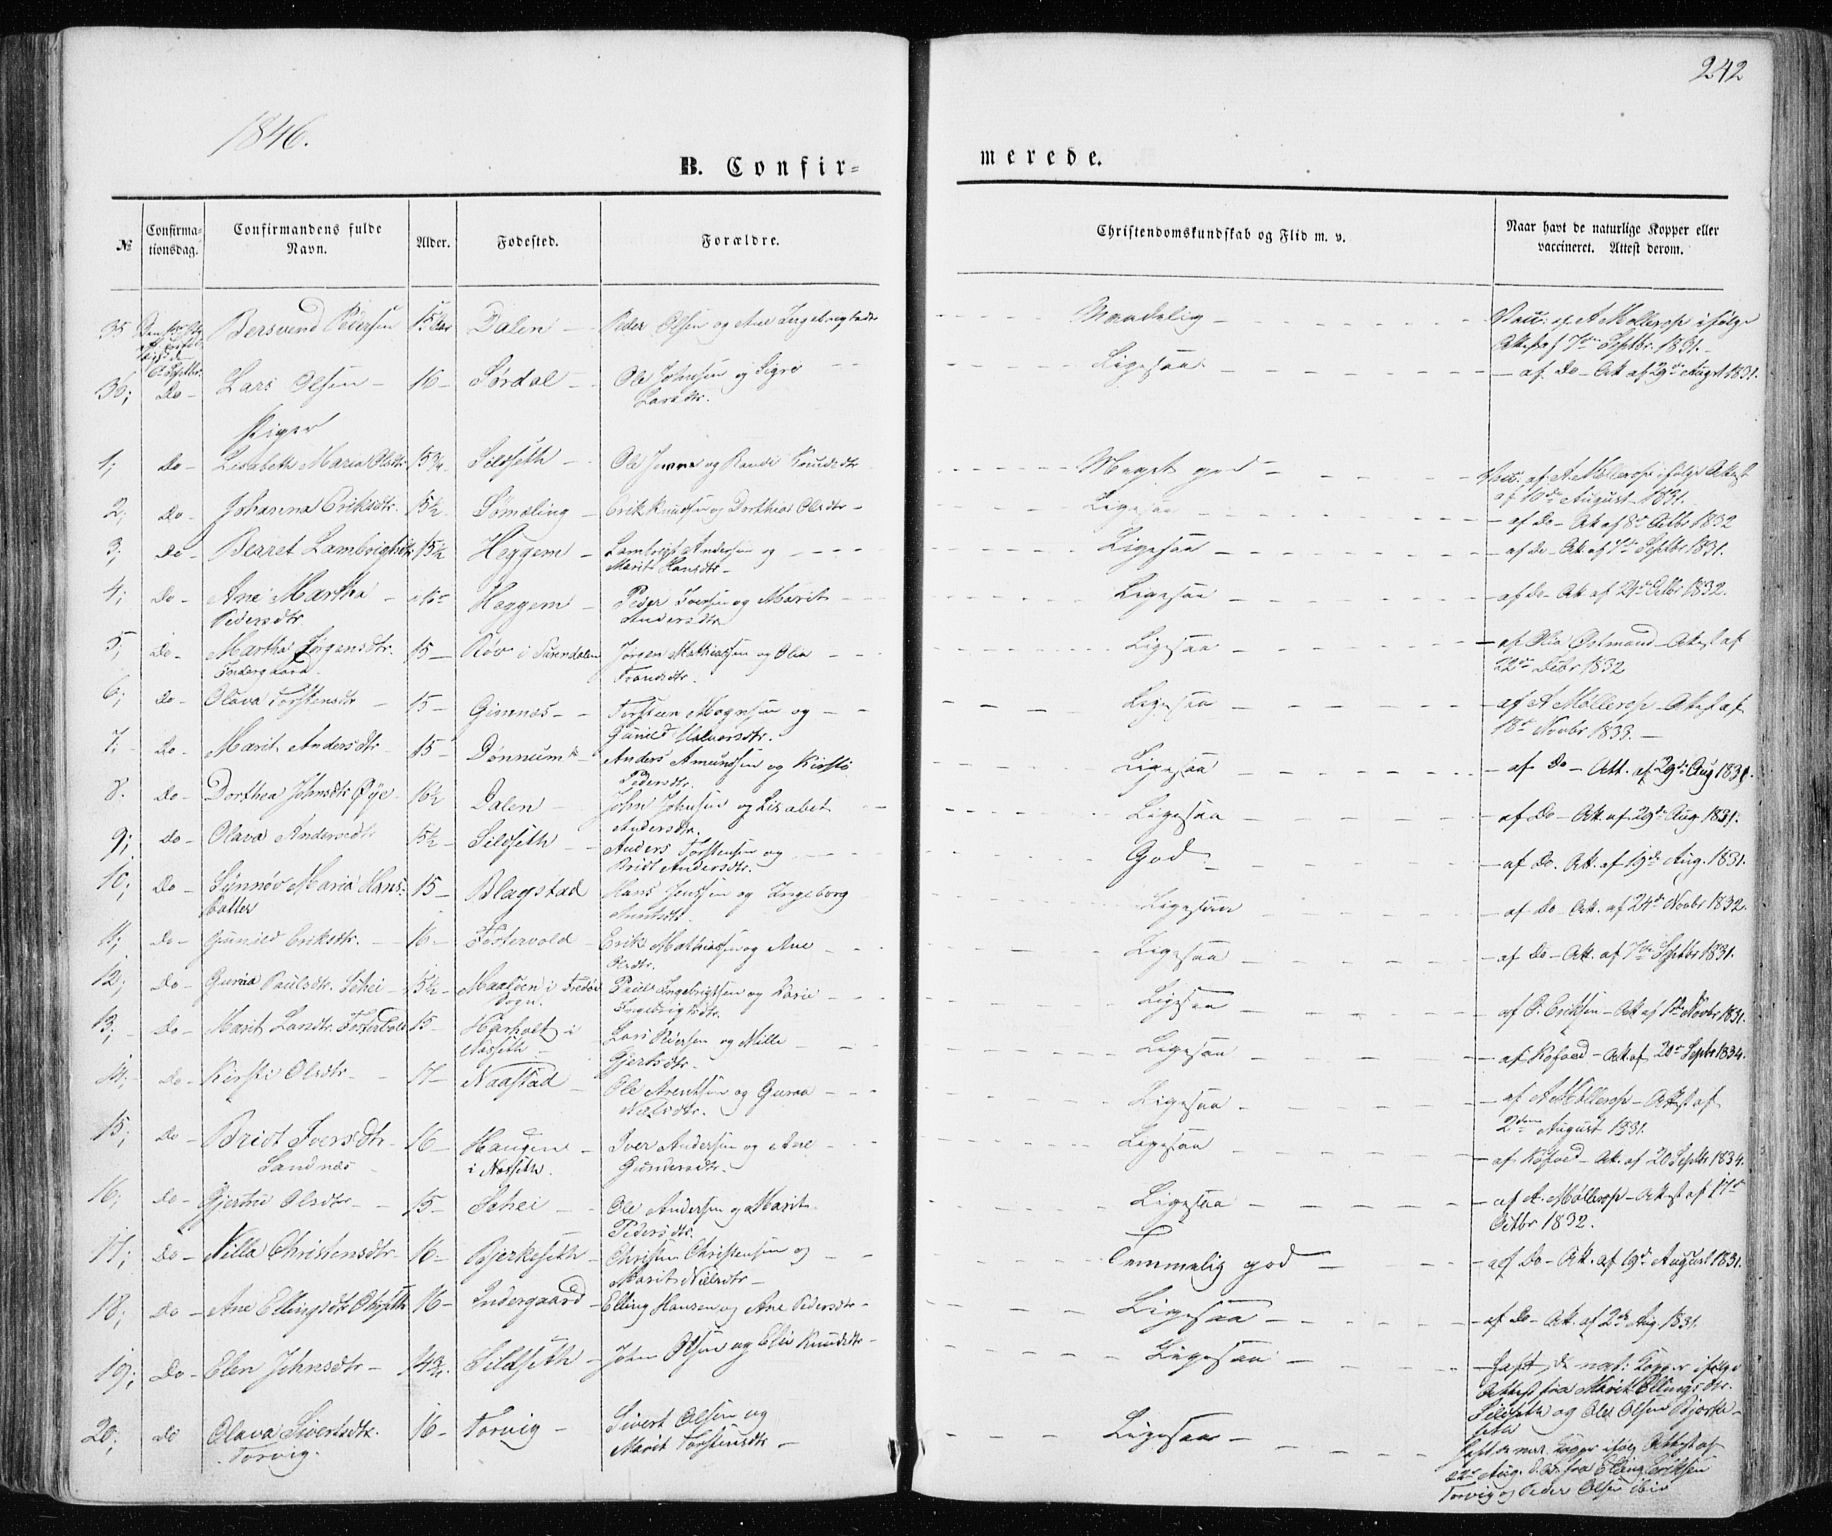 242
1846.
B. Confir-
merede.
№ Confirma-tionsdag. Confirmandens fulde Navn. Alder. Fødested. Forældre. Christendomskundskab og Flid m. v. Naar havt de naturlige Kopper eller vaccineret. Attest derom.
35 Bersvend Pedersen 15 Dalen Peder Olsen og Ane Ingebrigtsdtr Maadelig Vacc: af A Møllerop ifølge
Attest af 7de Septbr. 1831.
36; Do Lars Olsen 16 Sørdal Ole Johnsen og Sigre Ligesaa af Do Att af 29de Augst 1831.
Larsdtr.
Piger
1; Do Lisabeth Maria Olsdtr 15 3/4 Silseth Ole og Randi Knudsdtr Meget god Vacc. af A Møllerop ifølge Attest
af 10de August 1831.
2; Do Johanna Eriksdtr. 15½ Sømæling Erik Knudsen og Dorthea Olsdtr Ligesaa af Do Att af 8de Octbr 1832
3; Do Berret Lambrigtsdtr 15½ Heggem Lambrigt Andersen og Ligesaa af do Att. af 7de Septbr 1831.
Marit Hansdtr
4; Do Ane Martha Heggem Peder Iversen og Marit Ligesaa af do Att af 29de Octbr 1832.
Pedersdtr Andersdtr
5; Do Martha Jørgensdtr. 15 Røv i Surendalen Jørgen Mathiassen og Olia Ligesaa af Olia Østmand Attest af
Indergaard. Trondsdtr. 22de Febr 1832
6; Do Olava Torstensdtr 15 Gimnæs Torsteen Mognsen og Ligesaa af A Møllerop Attest af
Gunild Halvorsdtr. 18de Novbr 1833.
7. Do Marit Andersdtr 15 Dønnum Anders Amundsen og Kirsti Ligesaa af Do Att. af 29de Aug 1831.
Pedersdtr.
8. Do Dorthea Johnsdtr Øye 16½ Dalen John Johnsen og Lisabet Ligesaa af Do Att. af 29de Aug 1831.
Andersdtr.
9; Do Olava Andersdtr 15½ Silseth Anders Torstensen og God af Do. Att. af 19de Aug. 1831.
Bridt Andersdtr.
10; Do Synnøv Maria Hans- 15 Blagstad Hans Jenssen og Ingeborg Ligesaa af Do Att. af 24de Novbr 1832.
datter
11; Do Gunild Eriksdtr. 16 Fostervold Erik Mathiassen og Ane Ligesaa af Do Att. af 7de Septbr 1831.
Olsdtr.
12; Do Guroa Paulsdtr. Schei 15½ Maaløen i Fredø Paul Ingebrigtsen og Karie Ligesaa af O. Eriksen Att af 1ste Novbr 1831.
Sogn. Ingebrigtsdtr.
13; Do Marit Larsdtr. Fostervold 15 Harholt i Lars Pedersen og Mille Ligesaa af Kofoed Att af 20de Septbr 1834.
Næsseth Gjertsdtr.
14; Do Kirsti Olsdtr 17 Naastad Ole Arentsen og Guroa Ligesaa af A Møllerop Attest af
Nilsdtr. 2den August 1831.
15; Do Bridt Iversdtr 16 Haugen Iver Andersen og Ane Ligesaa af Kofoed Att. af 20 Septbr 1834.
Sandnæs i Næsseth. Gundersdtr.
16; Do Gjertru Olsdtr 15 Schei Ole Andersen og Marit Ligesaa af A. Møllerop Attest af 17de
Pedersdtr. Octbr 1832.
17; Do Nille Christensdtr 16 Bjerkeseth Christen Christensen og Temmelig god af Do Att. af 19de August 1831.
Marit Nielsdtr
18; Do Ane Ellingsdtr 16 Indergaard Elling Hansen og Ane Pedersdtr Ligesaa af Do Att. af 2den Aug. 1831.
19; Do Elen Johnsdtr 14 3/4. Sildseth John Olsen og Elis Knudsdtr Ligesaa havt de nat: Kopper ifølge
Attest fra Marit Ellingsdtr.
Sildseth og Ole Olsen Bjerke-
seth
20; do Olava Sivertsdtr. 16 Torvig Sivert Olsen og Ligesaa havt de nat. Kopper ifølg Attest af
Torvig. Marit Torstensdtr 22de Aug. fra Elling Eriksen
Torvig og Peder Olsen ibid